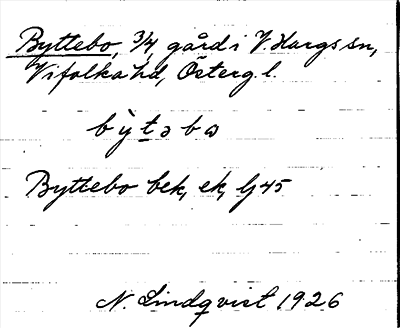 Byttebo, 3/4, gård i V. Hargs sn,
Vifolka hd, Österg. l.
bỳt̲ə bɷ
Byttebo bek, ek, Gj 45
N. Lindqvist 1926